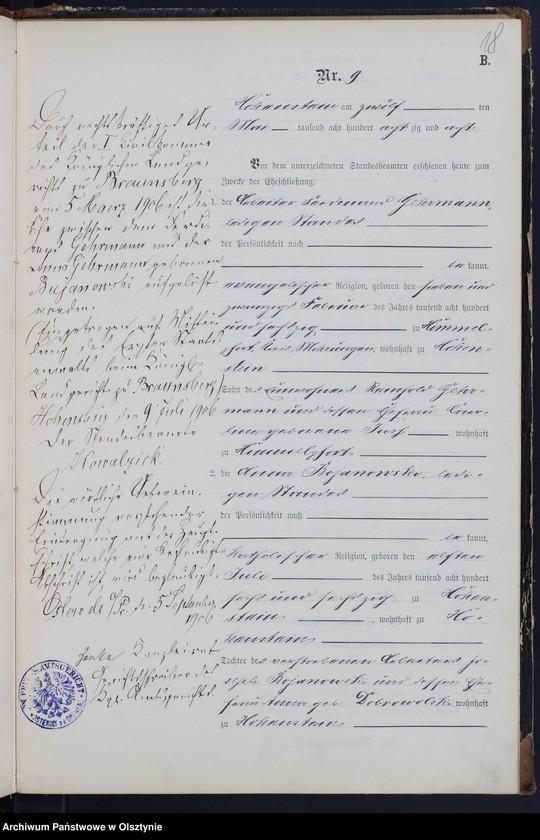 18
B.
Nr. 9
Hohenstein am zwölf ten
Mai tausend acht hundert acht zig und acht
Vor dem unterzeichneten Standesbeamten erschienen heute zum
Zwecke der Eheschließung:
1. der Arbeiter Ferdinand Gehrmann,
ledigen Standes
der Persönlichkeit nach
be kannt,
evangelischer Religion, geboren den sieben und
zwanzigst Februar des Jahres tausend acht hundert
und sechszig zu Himmel-
fort, Kreis Mohrungen, wohnhaft zu Hohen-
stein
Sohn des Einwohners Reinhold Gehr-
mann und dessen Ehefrau
geborene wohnhaft
zu Himmelpfort
2. die Anna Bojanowski, ledi-
gen Standes
der Persönlichkeit nach
be kannt,
katholischer Religion, geboren den elften
Juli des Jahres tausend acht hundert
sechs und sechszig zu Hohen-
stein, wohnhaft zu Ho-
henstein
Tochter des verstorbenen Arbeiters Jo-
seph Bojanowski und dessen Ehe-
frau geb. Dobrowolski wohnhaft
zu Hohenstein
Durch rechtskräftiges Ur-
teil der I Civilkammer
des Königlichen Landge-
richts zu Braunsberg
vom 5 Maerz 1906 ist die
Ehe zwischen dem Ferdi-
nand Gehrmann und der
Anna Gehrmann geborenen
Bujanowski aufgelöst
worden.
Eingetragen auf Mittei-
lung des Ersten Staats-
anwalts beim Königl.
Landgericht zu Braunsberg
Hohenstein den 9 Juli 1906
Der Standesbeamte
Kowalzick.
Die wörtliche Ueberein-
stimmung vorstehender
Eintragung mit der Haupt-
schrift, welche mit
Abschrift ist, wird beglaubigt.
Osterode O/Pr. d. 5 September
1906
Kanzleirat
Gerichtsschreiber des
Kgl. Amtsgerichts
Archiwum Państwowe w Olsztynie